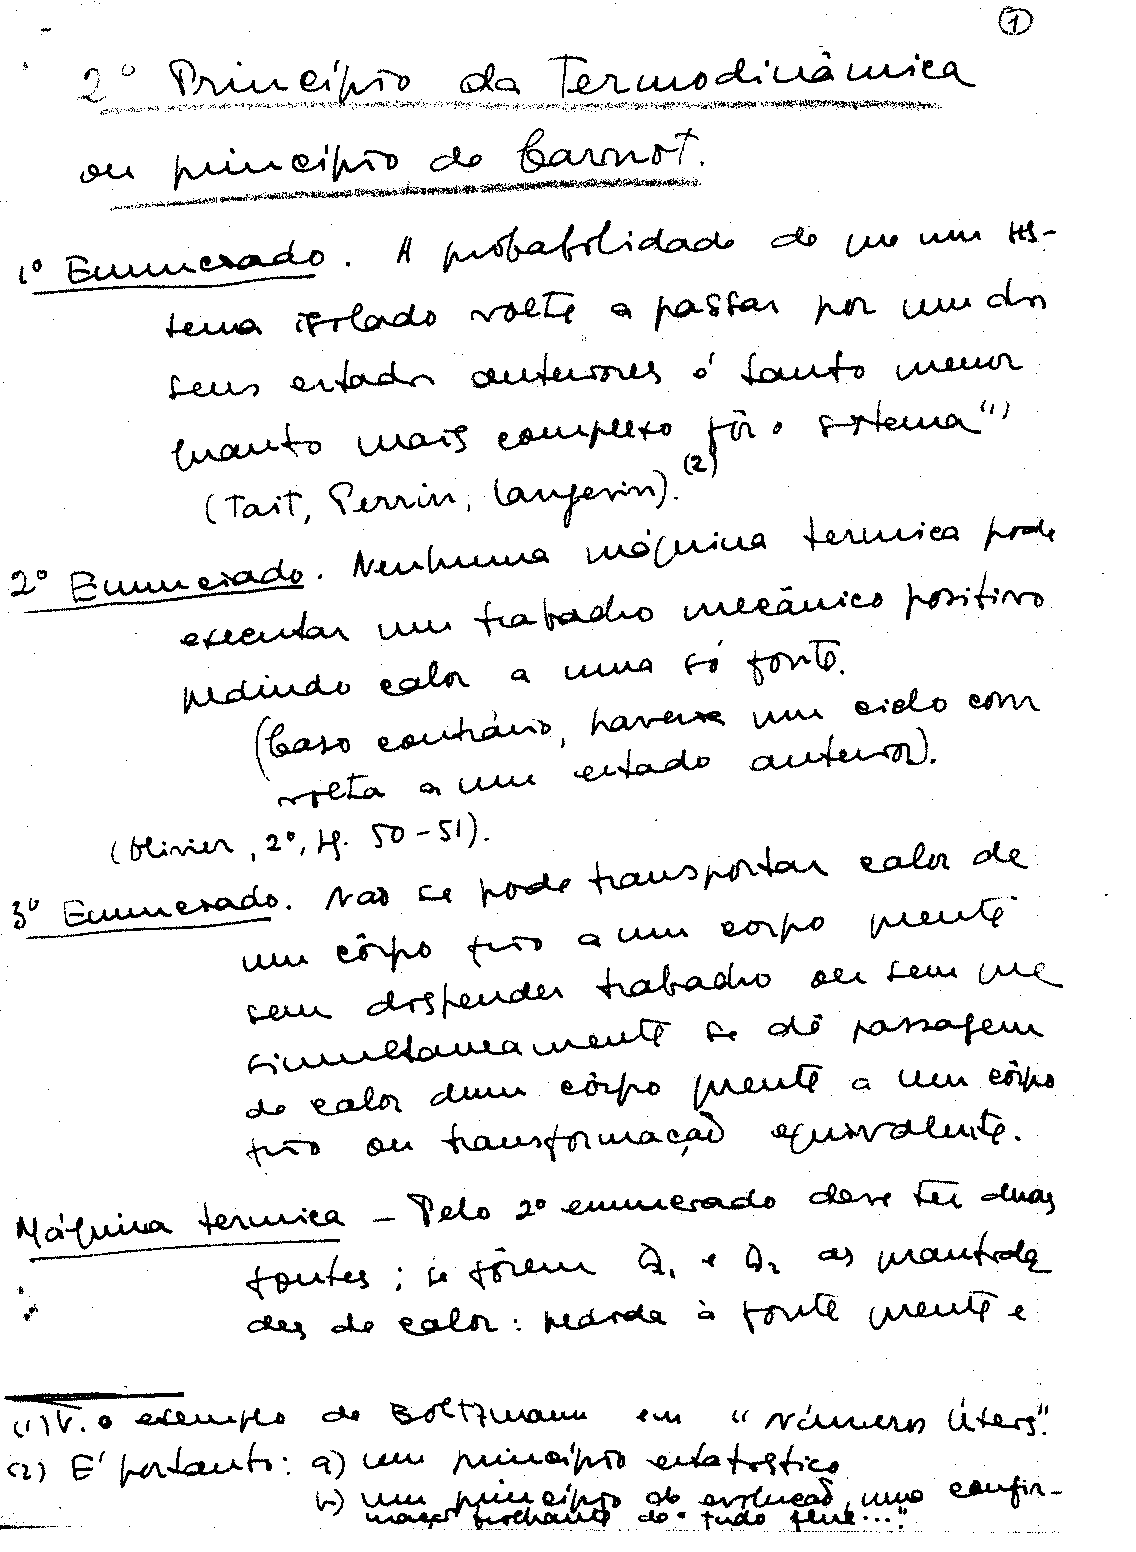 ①
2º Princípio da Termodinâmica
ou princípio de Carnot.
1º Enunciado. A probabilidade de que um sis-
tema isolado volte a passar por um dos
seus estados anteriores é tanto menor
quanto mais complexo fôr o sistema (1)
(Tait, Perrin, Langevin). (2)
2º Enunciado. Nenhuma máquina termica pode
executar um trabalho mecânico positivo
pedindo calor a uma só fonte.
(Caso contrário, haveria um ciclo com
volta a um estado anterior).
(Olivier, 2º, pg. 50-51).
3º Enunciado. Não se pode transportar calor de
um côrpo frio a um corpo quente
sem dispender trabalho ou sem que
simultaneamente se dê passagem
de calor dum côrpo quente a um côrpo
frio ou transformação equivalente.
Máquina termica - Pelo 2º enunciado deve ter duas
fontes; se fôrem Q₁ e Q₂ as quantida
des de calor: pedida à fonte quente e
(1) V. o exemplo de Boltzmann em "Números Úteis".
(2) É portanto: a) um princípio estatístico
b) um princípio de evolução, uma confir-
mação do "tudo flue..."